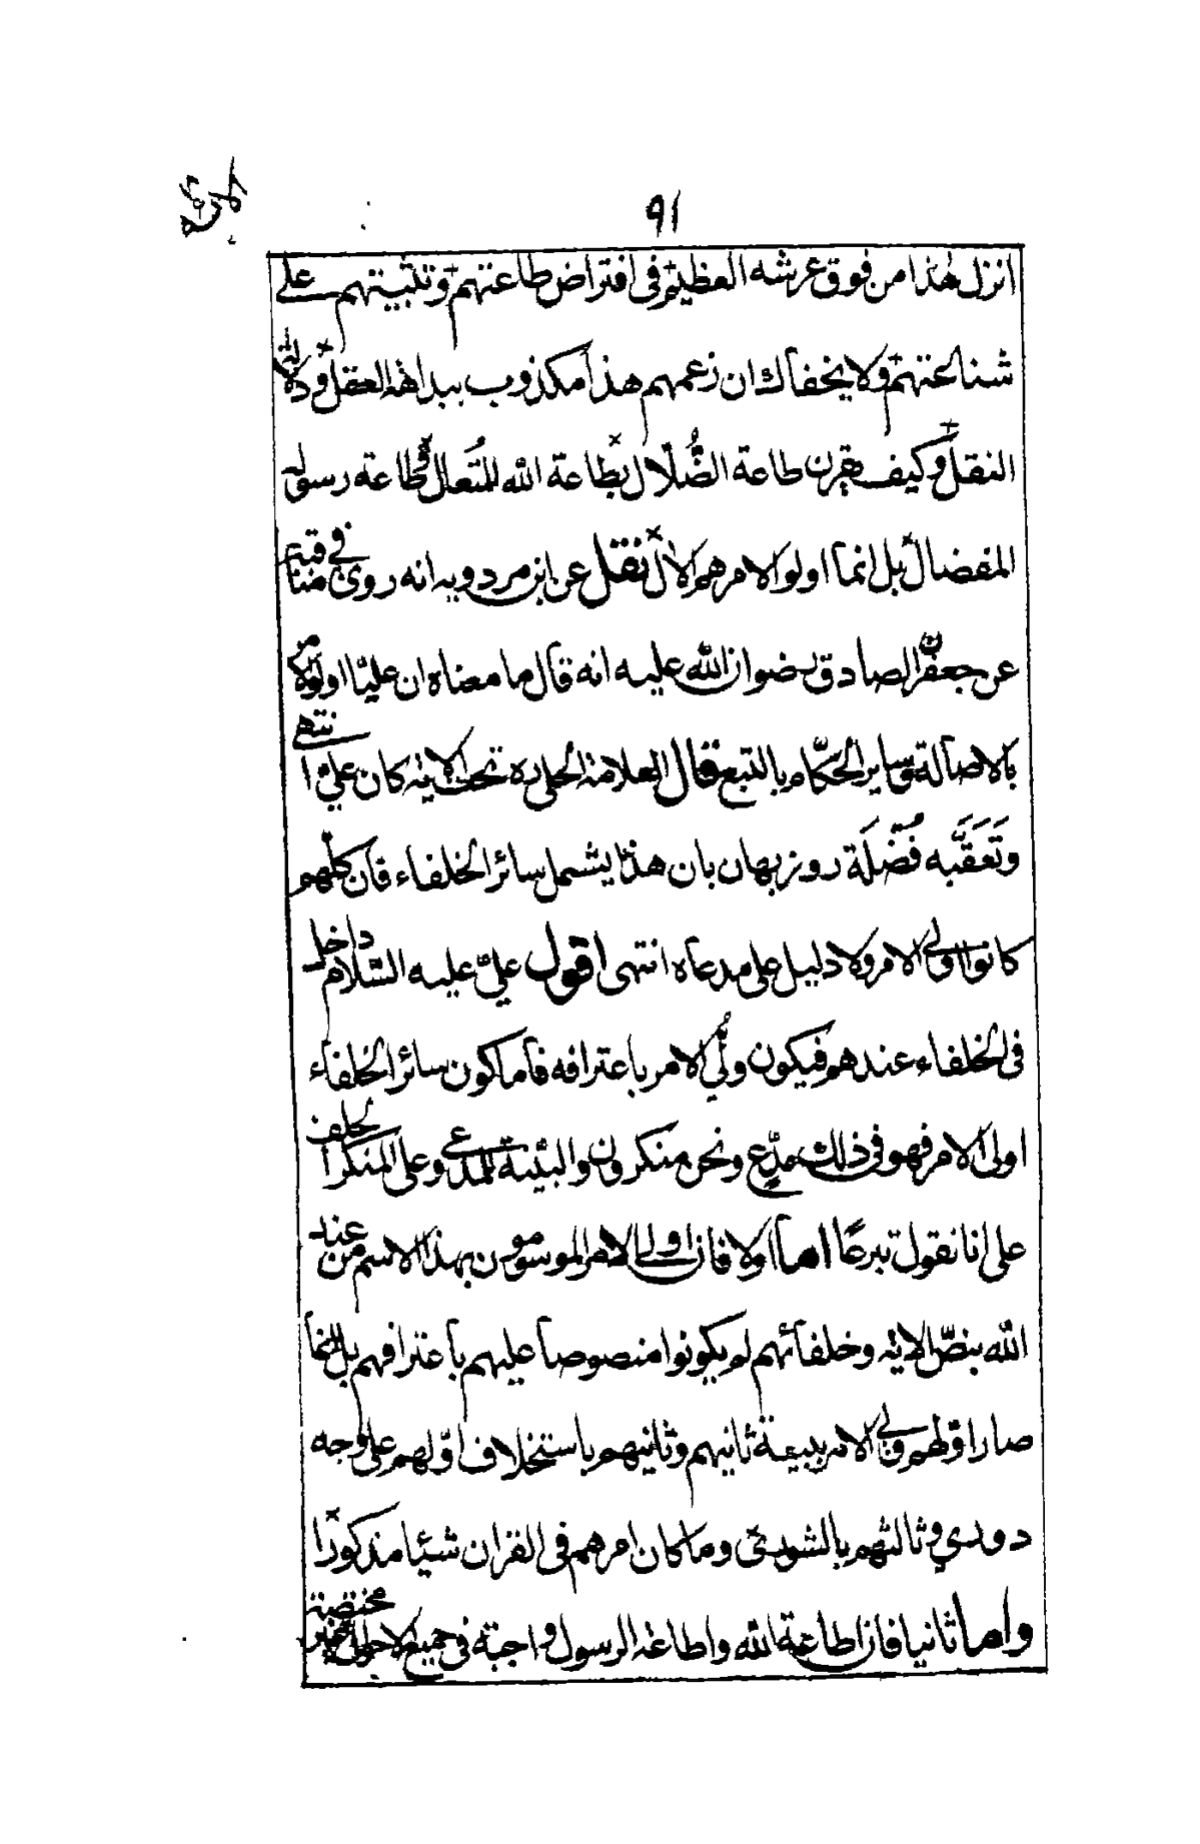 ٩١
انزل هذا من فوق عرشه العظيم في افتراض طاعتهم وتثبيتهم على
شناعتهم ولا يخفاك ان زعمهم هذا مكذوب ببداهة العقل ودلالة
النقل وكيف يقرن طاعة الضُّلّال بطاعة الله المتعال وطاعة رسوله
المفضال بل انما اولوا الامر هم الآل نقل عن ابن مردويه انه روى في مناقبه
عن جعفر الصادق رضوان الله عليه انه قال ما معناه ان عليّا اولوالامر
بالاصالة وساير الحكّام بالتبع قال العلامة الحلي ره تحت الاية كان عليّ انتهى
وتَعَقَّبه فُضَلَة روزبهان بان هذا يشمل سائر الخلفاء فان كلّهم
كانوا اولي الامر ولا دليل على مدعاه انتهى اقول عليّ عليه السّلام داخل
في الخلفاء عندهم فيكون وليُّ الامر باعترافه فاما كون سائر الخلفاء
اولى الامر فهو في ذلك مدّعٍ ونحن منكرون والبيّنة للمدعى وعلى المنكر الحلف
على انا نقول تبرعًا اما اولا فان اولى الامر الموسومون بهذا الاسم من عند
الله بنصّ الاية وخلفائهم لم يكونوا منصوصا عليهم باعترافهم بل انما
صار اوّلهم ولي الامر ببيعة ثانيهم وثانيهم باستخلاف اوّلهم على وجه
دوري وثالثهم بالشورى وما كان امرهم في القران شيئا مذكورًا
واما ثانيا فان اطاعة الله واطاعة الرسول واجبة في جميع الاحوال غير مختصة